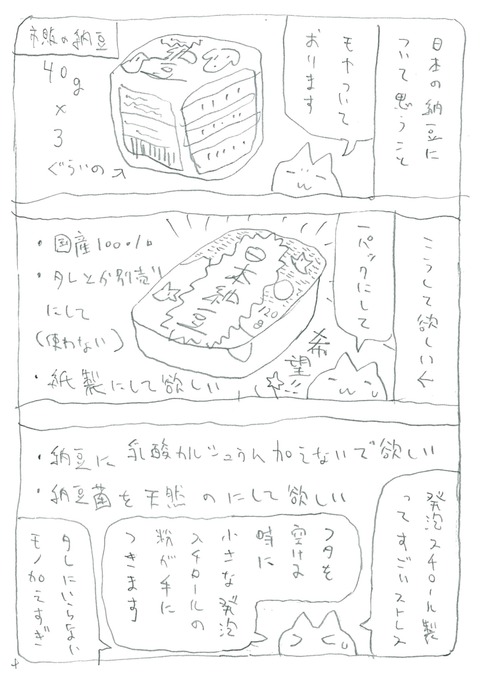 日本の納豆に
ついて思うこと
モヤついて
おります
市販の納豆
40g
×
3
ぐらいの
こうして欲しい←
一パックにして
日本
納豆
120
g
希望
・国産100%
・タレとか別売り
にして
(使わない)
・紙製にして欲しい
・納豆に乳酸カルシュウム加えないで欲しい
・納豆菌を天然のにして欲しい
発泡スチロール製
ってすごいストレス
フタを
空ける
時に
小さな発泡
スチロールの
粉が手に
つきます
タレにいらない
モノ加えすぎ